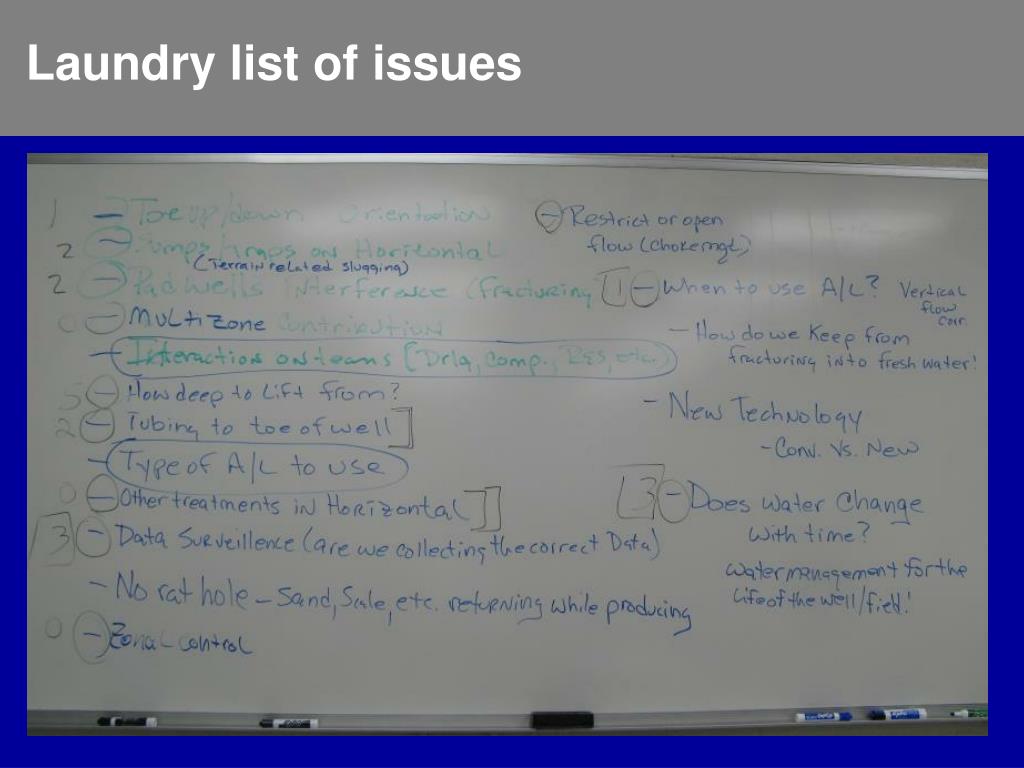 Laundry list of issues
1 – Toe up/down Orientation
2 – Pumps/traps on Horizontal
(Terrain related slugging)
2 – Pad wells Interference (fracturing
0 – Multi Zone Contribution
– Interaction on teams (Drlg, Comp., RES, etc.)
5 – How deep to Lift from?
2 – Tubing to toe of well ]
– Type of A/L to use
0 – Other treatments in Horizontal ]
3 – Data Surveillence (are we collecting the correct Data)
– No rat hole – Sand, Scale, etc. returning while producing
0 – Zonal control
– Restrict or open
flow (choke mgt)
1 – When to use A/L? Vertical
flow
corr.
– How do we Keep from
fracturing into fresh water!
– New Technology
– Conv. Vs. New
3 – Does water Change
with time?
water management for the
Life of the well/field!